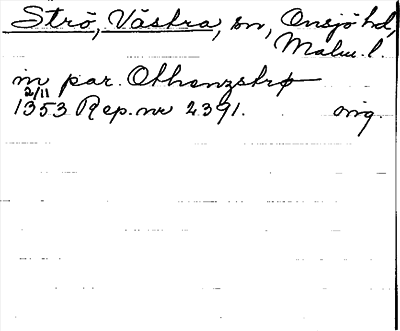 Strö, Västra, sn, Onsjö hd,
Malm. l.
in par. Othenzstrø
2/11
1353 Rep. nr 2391. orig.